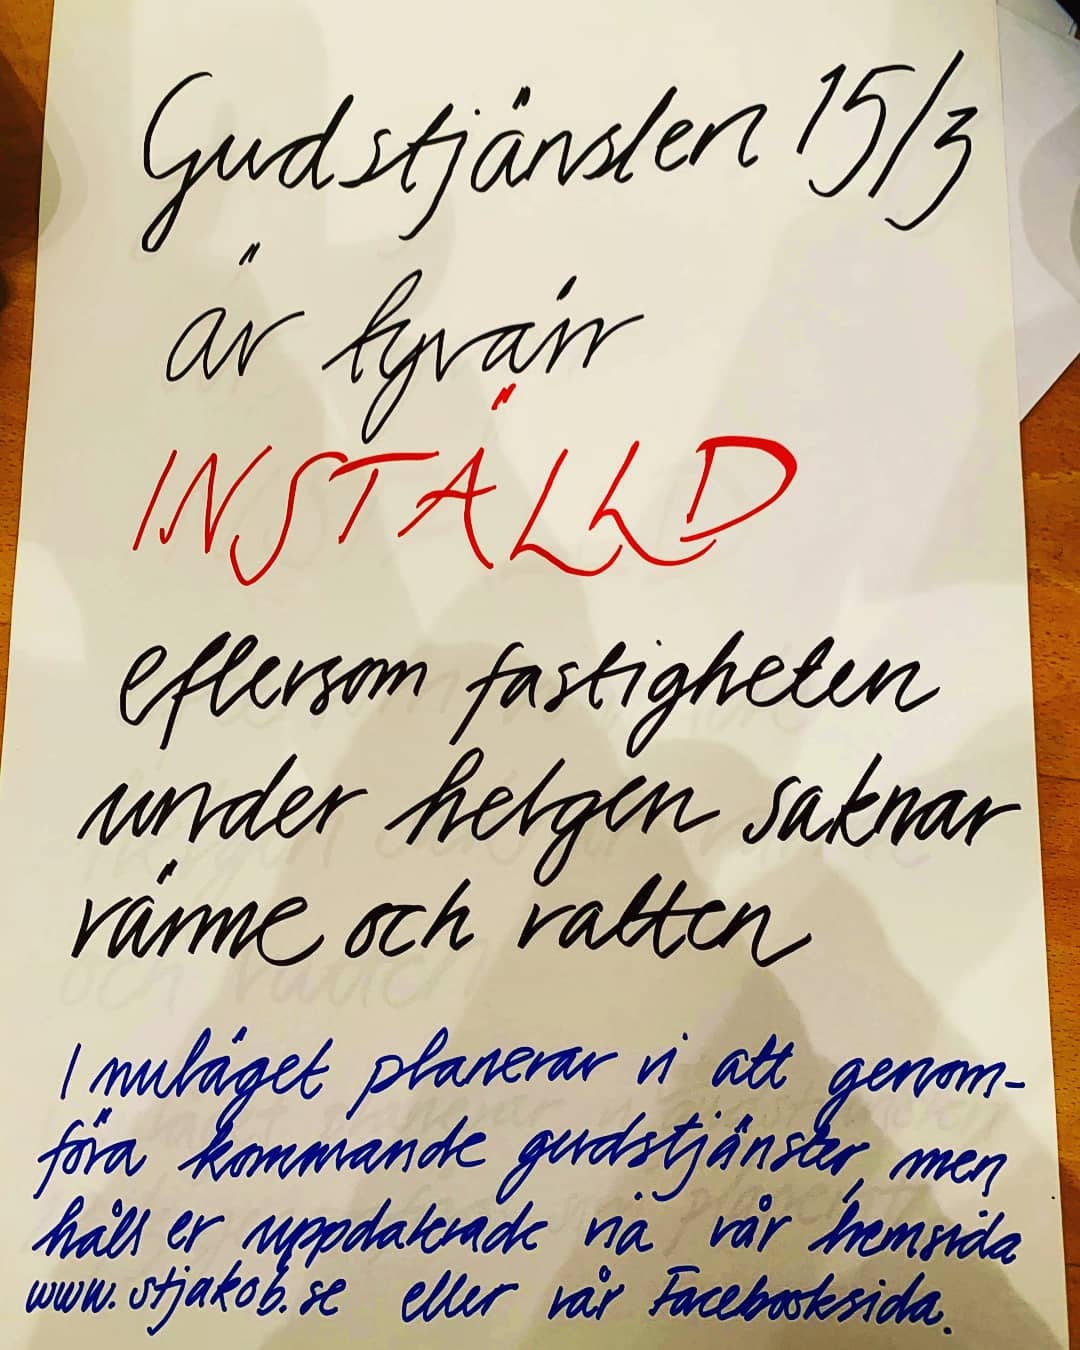 Gudstjänsten 15/3
är tyvärr
INSTÄLLD
eftersom fastigheten
under helgen saknar
värme och vatten
I nuläget planerar vi att genom-
föra kommande gudstjänster, men
håll er uppdaterade via vår hemsida
www.stjakob.se eller vår Facebooksida.